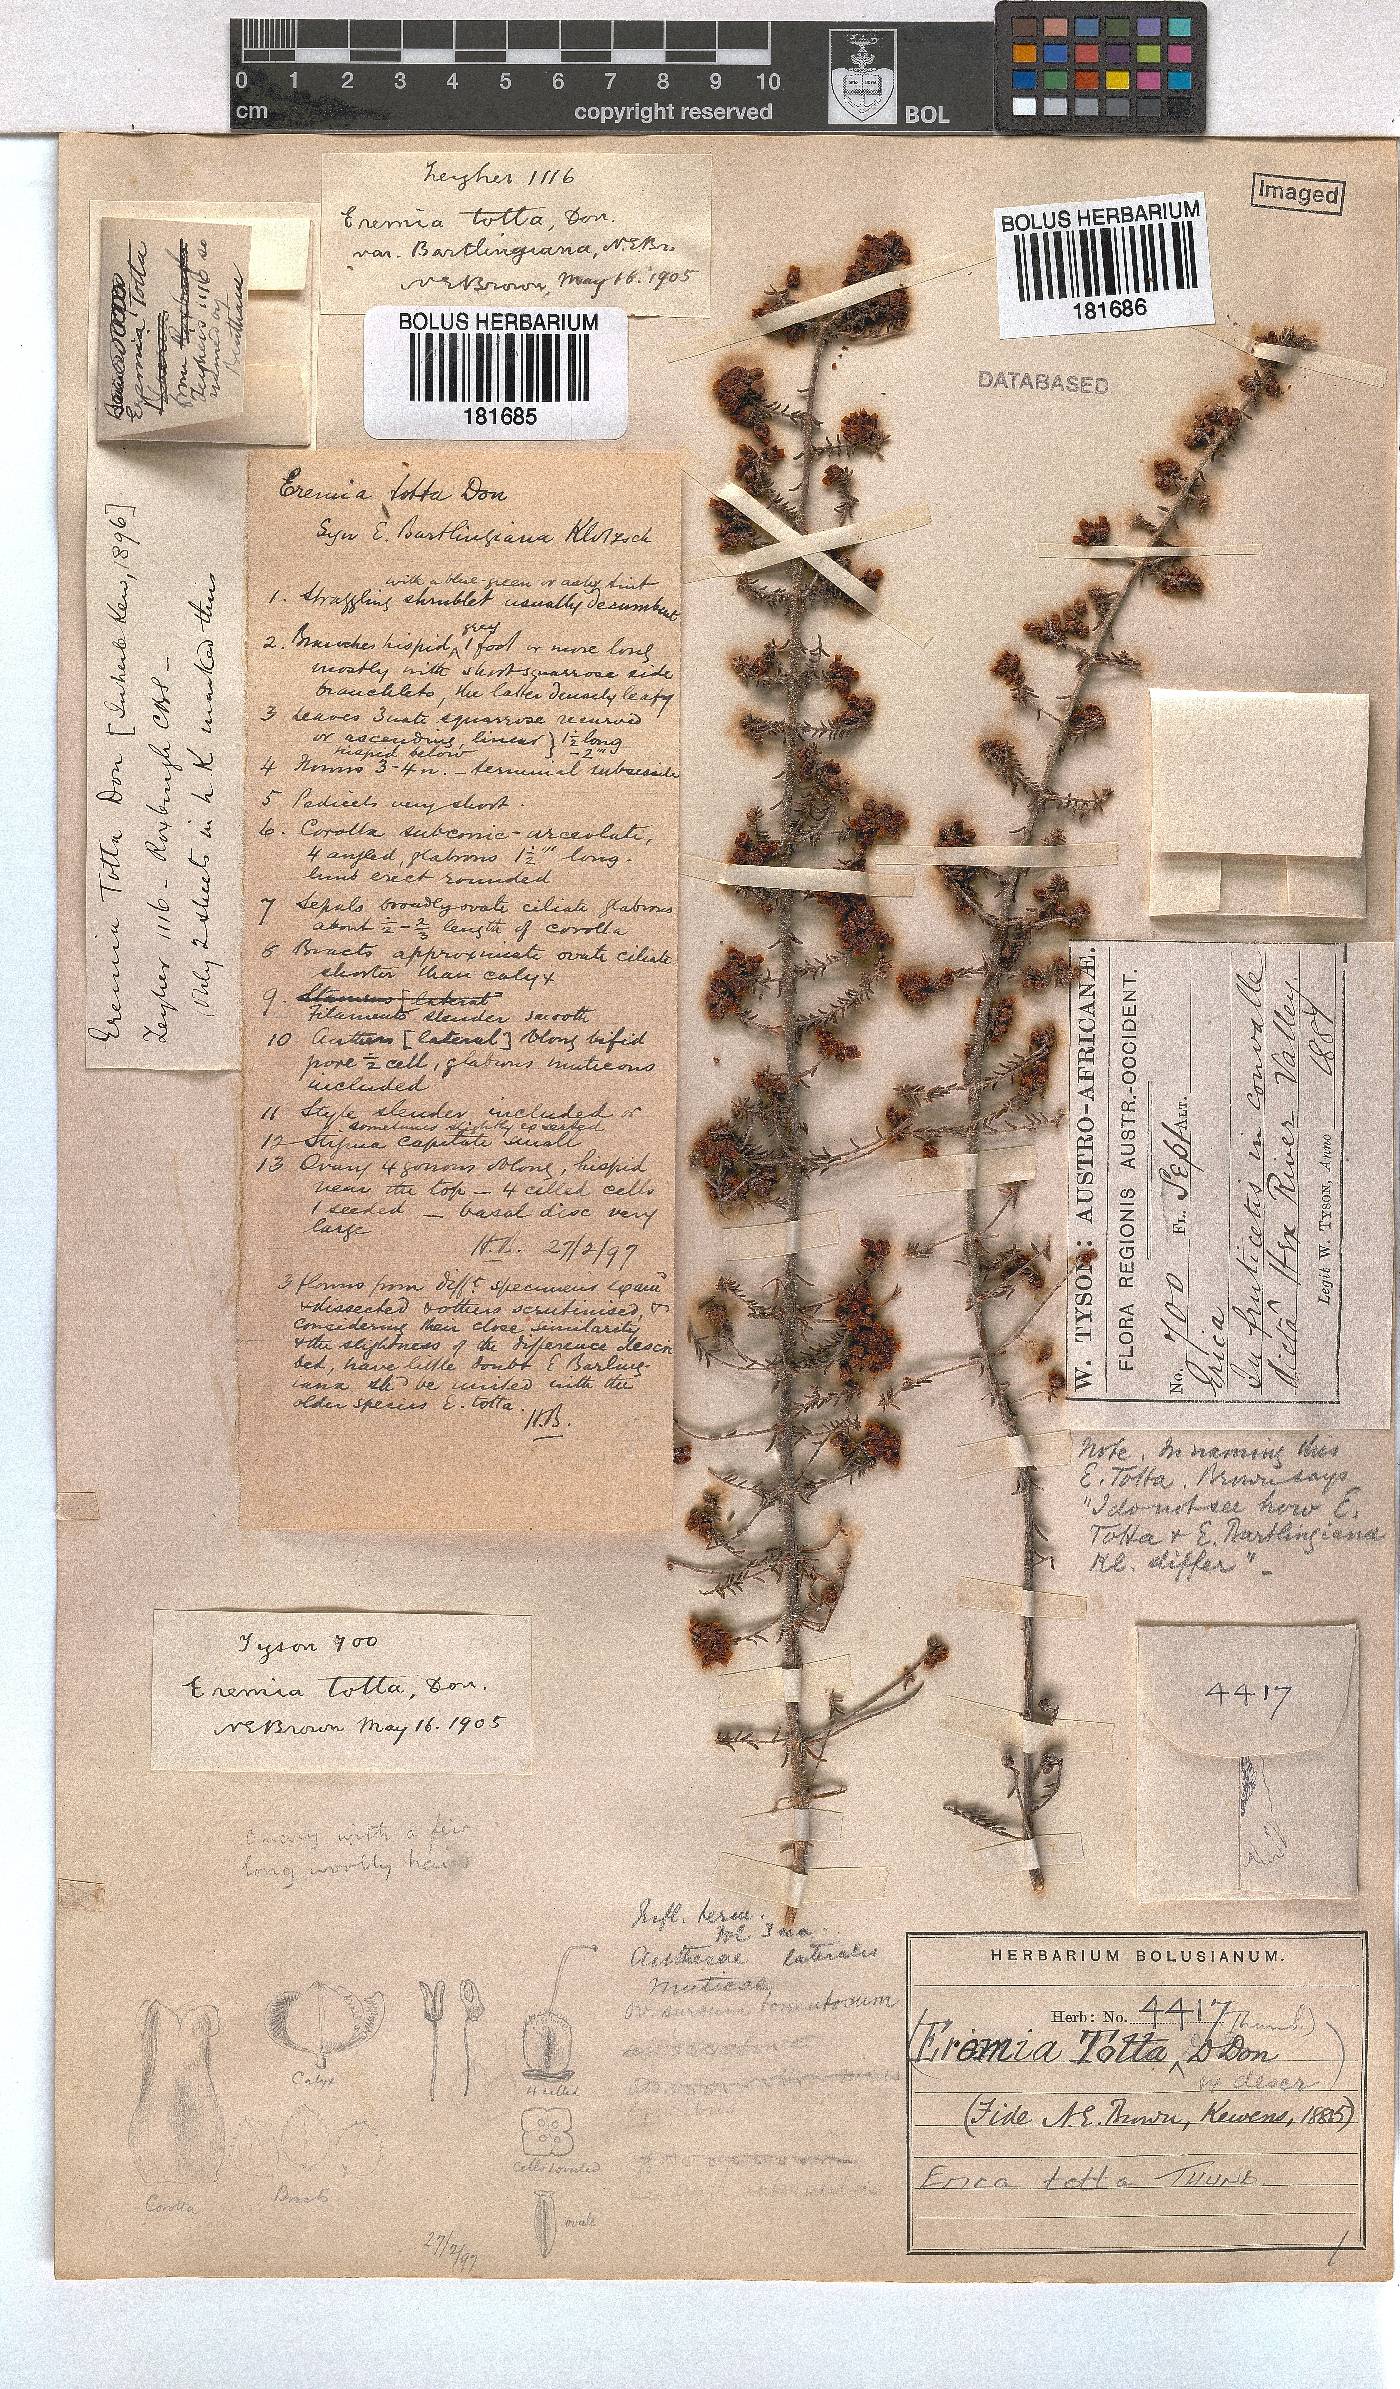 0 1 2 3 4 5 6 7 8 9 10
cm
copyright reserved
BOL
Imaged
Zeyher 1116
Eremia totta, Don.
var. Bartlingiana, N.E.Br.
N.E.Brown, May 16. 1905
BOLUS HERBARIUM
181685
BOLUS HERBARIUM
181686
DATABASED
Eremia Totta
Zeyher's 1116 so
named by
Bentham
Eremia Totta Don [In herb. Kew, 1896]
Zeyher 1116 - Roxburgh CBS -
Only 2 sheets in h K marked thus
Eremia totta Don
Syn E. Bartlingiana Klotzsch
with a blue-green or ashy tint
1. Straggling shrublet usually decumbent
2. Branches hispid, grey 1 foot or more long
mostly with short squarrose side
branchlets, the latter densely leafy
3 Leaves 3nate squarrose recurved
or ascending, linear } 1½ long
hisped below - 2'''
4 Flowers 3-4n. - terminal subsessile
5 Pedicels very short.
6. Corolla subconic-urceolate,
4 angled, glabrous 1½''' long.
limb erect rounded
7 Sepals broadly ovate ciliate glabrous
about ½ - ⅔ length of corolla
8 Bracts approximate ovate ciliate
shorter than calyx
9. Stamens [lateral
Filaments slender smooth
10 Anthers [lateral] oblong bifid
pore ½ cell, glabrous muticous
included
11 Style slender included or
sometimes slightly exserted
12 Stigma capitate small
13 Ovary 4 gonous oblong, hispid
near the top - 4 celled cells
1 seeded - basal disc very
large
H.B. 27/2/97
3 flowers from difft. specimens exam
& dissected & others scrutinised, &
considering their close similarity
& the slightness of the difference descri
bed, have little doubt E Bartling-
iana shd be united with the
older species E. totta.
H.B.
W. TYSON: AUSTRO-AFRICANÆ.
FLORA REGIONIS AUSTR.-OCCIDENT.
No. 700 Fl. Sept Alt.
Erica
In fruticetis in convalle
dictâ Hex River Valley
Legit W. TYSON, Anno 1884
Note. In naming this
E. Totta. Brown says
"I do not see how E.
Totta & E. Bartlingiana
Kl. differ" -
Tyson 700
Eremia totta, Don.
N.E.Brown May 16. 1905
4417
Ovary with a few
long woolly hairs
Infl. term.
Antherae laterales
muticae
Calyx
4 celled
Cells 1 ovuled
Corolla
Bracts
ovule
27/2/97
HERBARIUM BOLUSIANUM.
Herb: No. 4417
(Thunb.)
(Eremia Totta, D Don
ex descr)
(Fide N.E. Brown, Kewens, 1885)
Erica totta THUNB
1